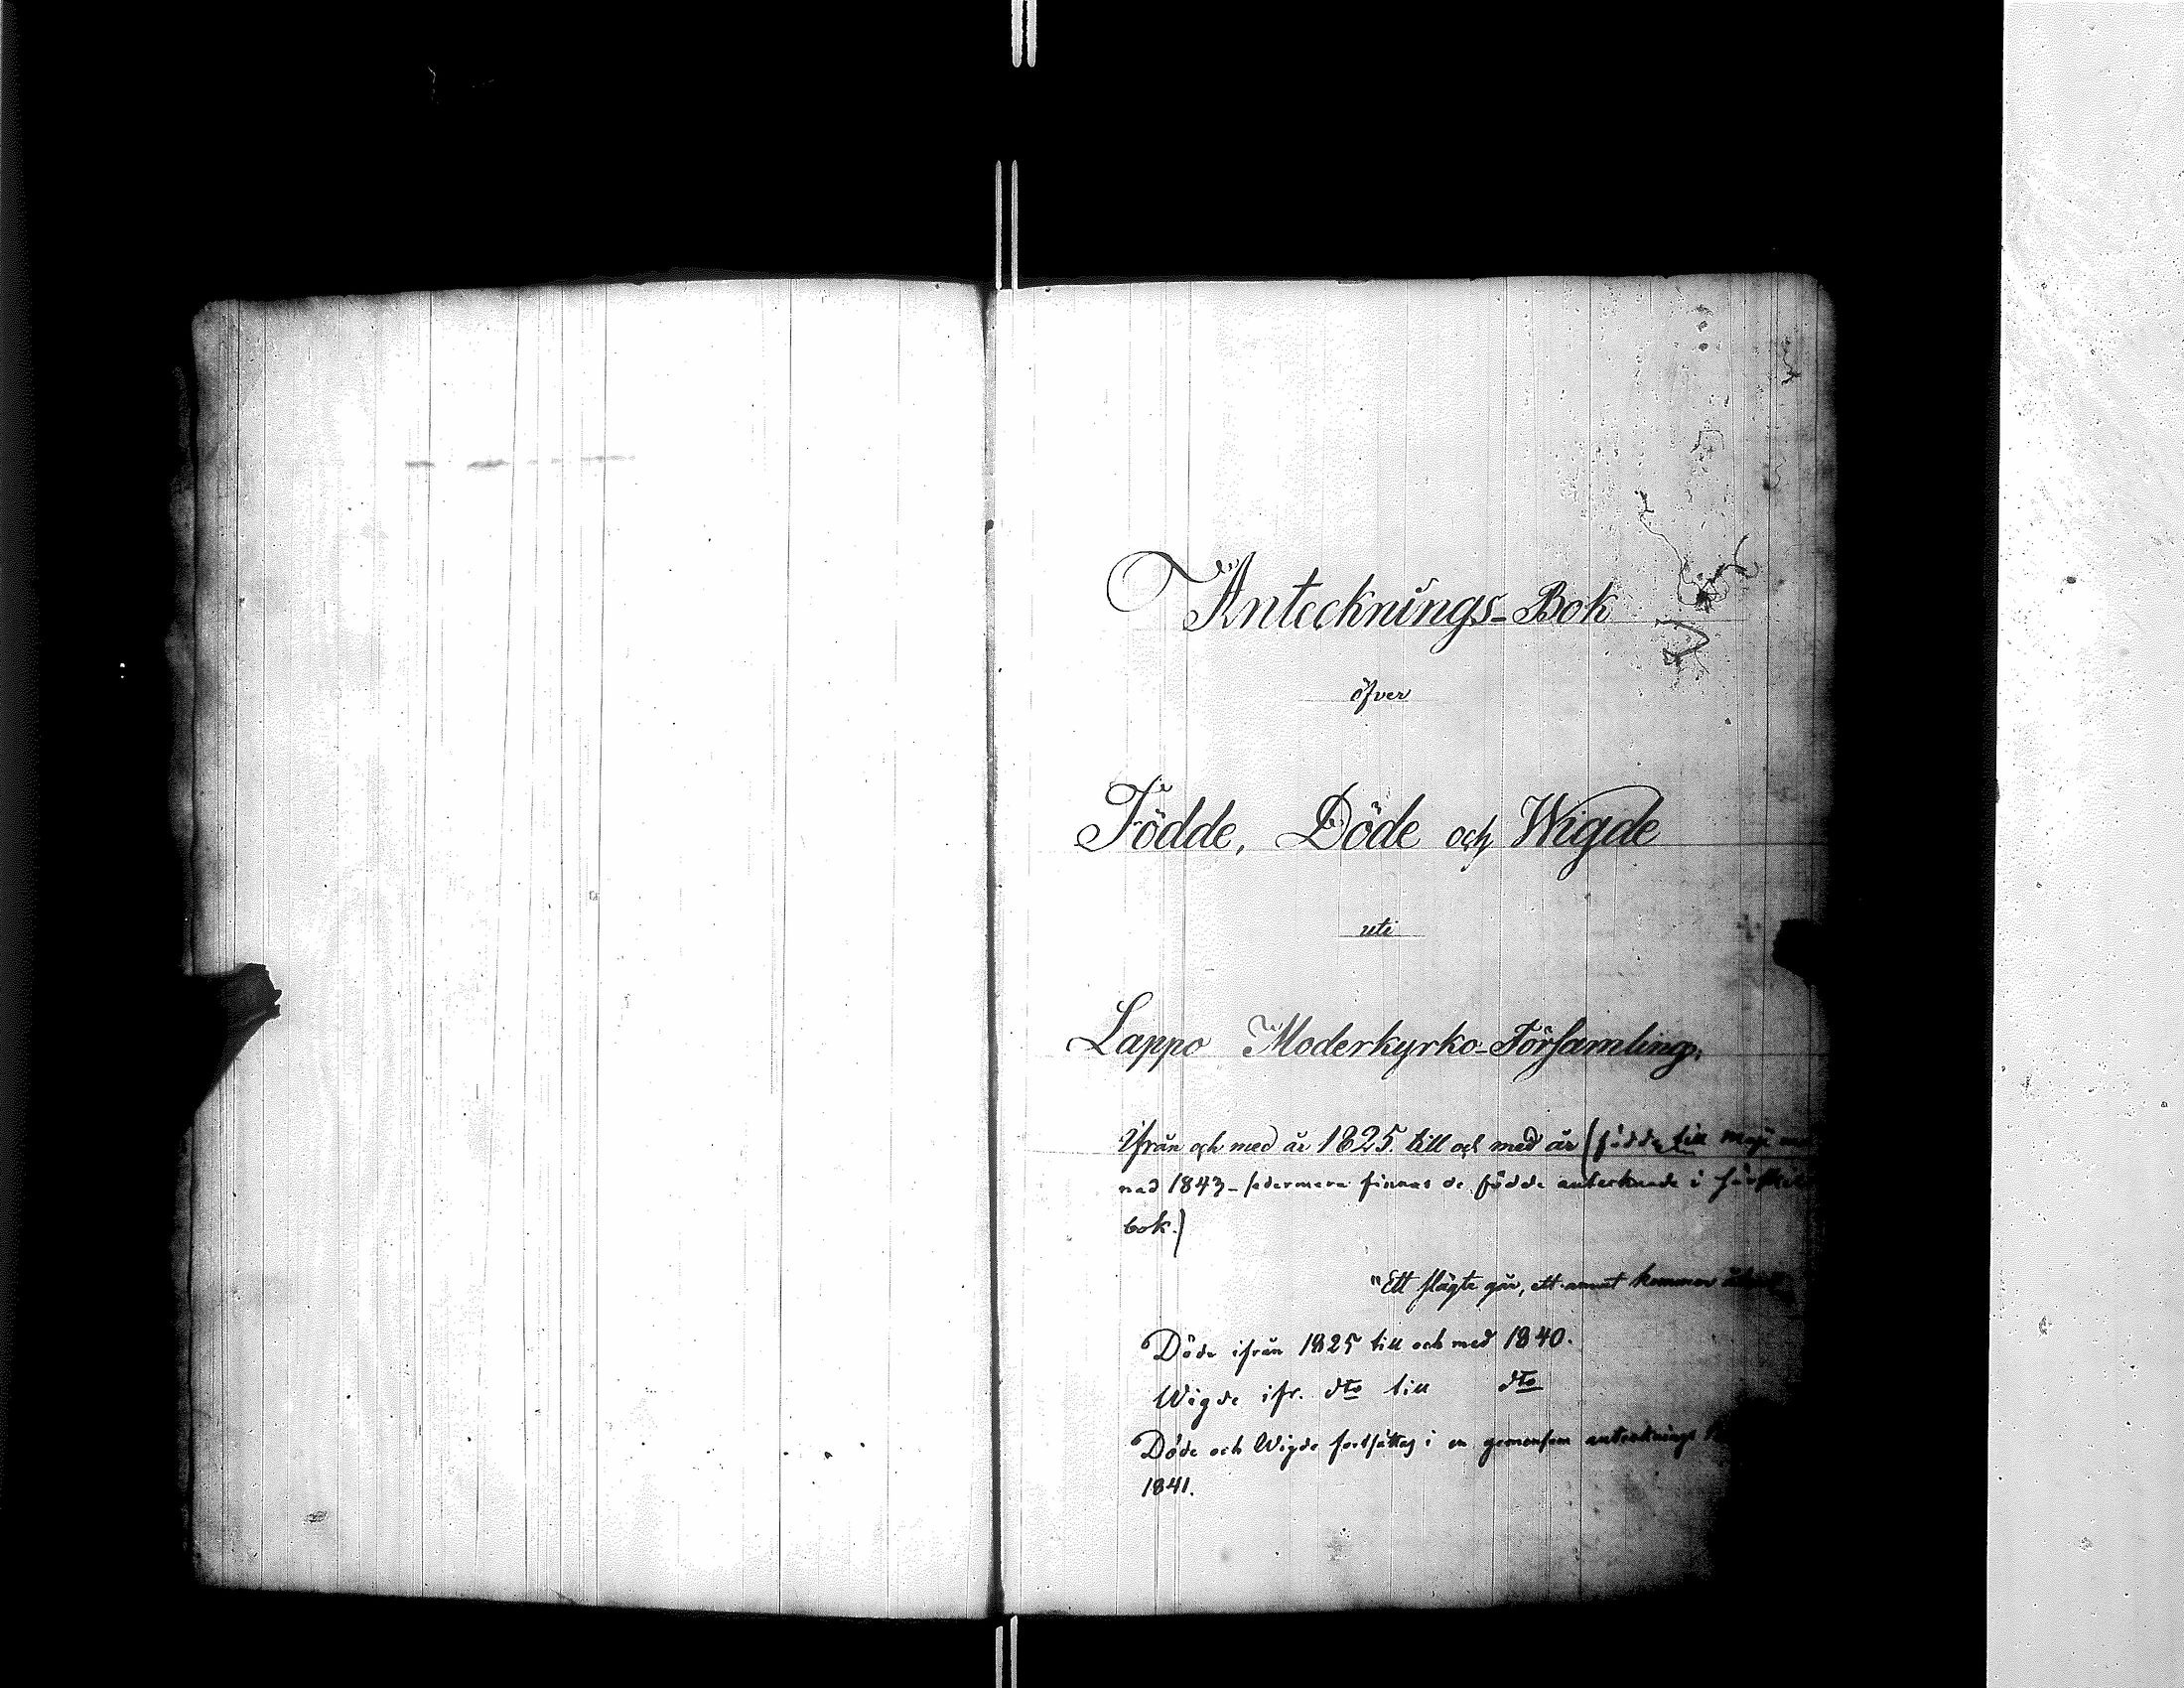 Antecknings-Bok
öfver
Födde, Döde och Wigde
uti
Lappo Moderkyrko-Församling,
Ifrån och med år 1825. till och med år (födde till Maji
nad 1843 - sedermera finnas de födde antecknade i
bok.)
"Ett slägte går, ett annat kommer
Döde ifrån 1825 till och med 1840.
Wigde ifr. dto till dto
Döde och Wigde fortsättas i en gemensam antecknings
1841.